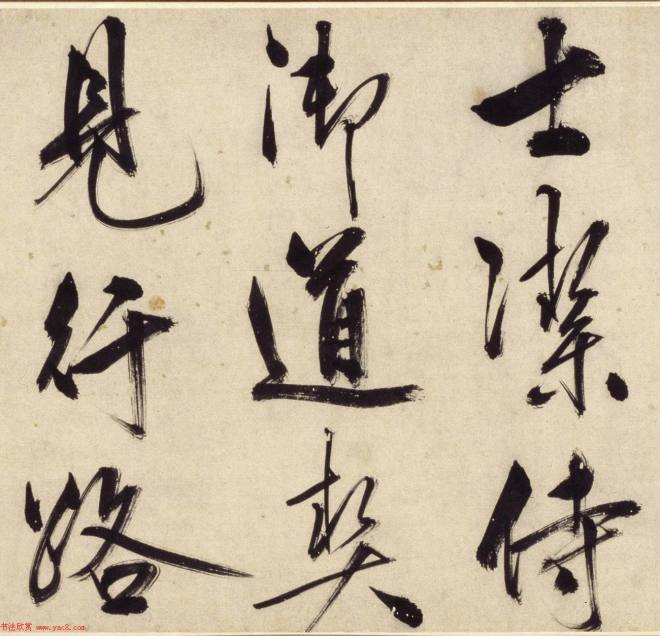 士潔侍
御道契
見行路
书法欣赏 www.yac8.com